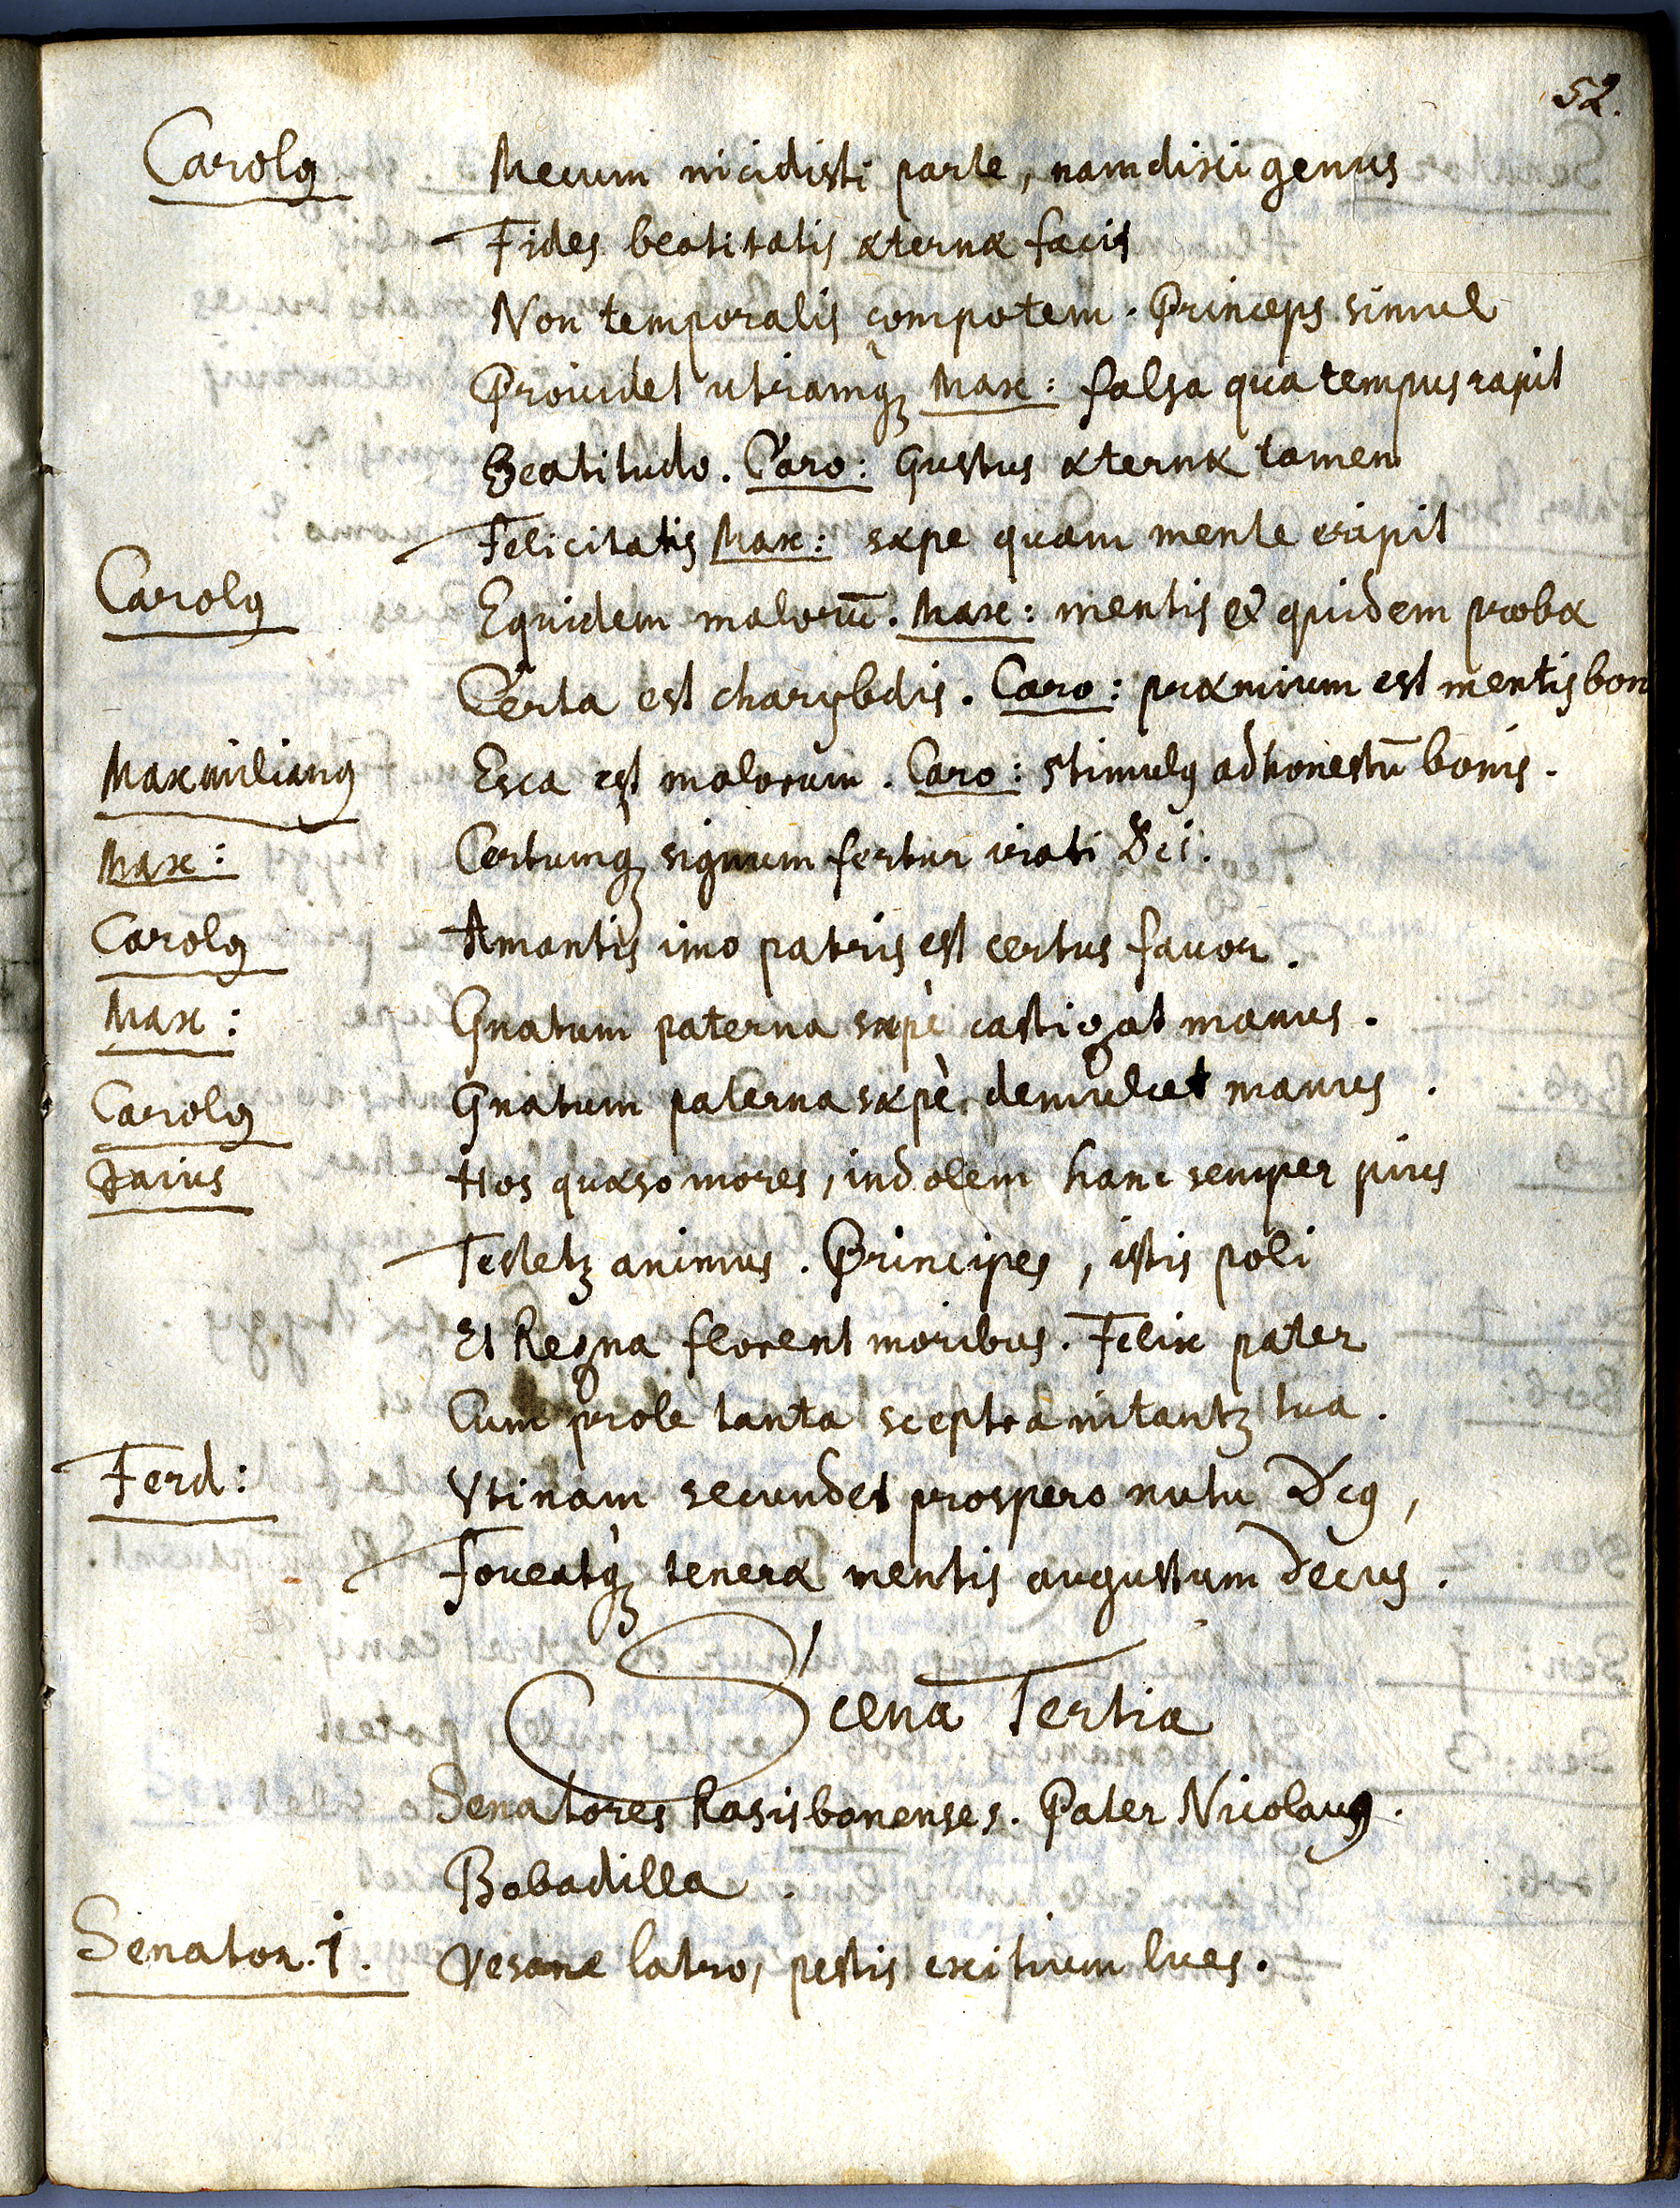 52.
Carolꝯ Mecum incidisti parte, nam dixi genus
Fides beatitatis æternæ facit
Non temporalis compotem. Princeps simul
Prouidet utramqꝫ Max: falsa qua tempus rapit
Beatitudo. Caro: Gustus æternæ tamen
Felicitatis Max: sæpe quam mente eripit
Carolꝯ Equidem malorū. Max: mentis & quidem probæ
Certa est charybdis. Caro: præmium est mentis bon
Maximilianꝯ Esca est malorum. Caro: stimulꝯ ad honestū bonis.
Max: Certumqꝫ signum fertur irati Dei.
Carolꝯ Amantis imo patris est certus fauor.
Max: Gnatum paterna sæpè castigat manus.
Carolꝯ Gnatum paterna sæpè demulcet manus.
Hos quæso mores, indolem hanc semper pius
Testetꝫ animus. Principes, istis poli
Et Regna florent moribus. Felix pater
Cum prole tanta sceptra nitantꝫ tua.
Ferd: Vtinam secundet prospero nutu Deꝯ,
Foueatqꝫ teneræ mentis augustum decus.
Scena Tertia
Senatores Rasisbonenses. Pater Nicolaus.
Bobadilla.
Senator. 1. Vesane latro, pestis exitium lues.